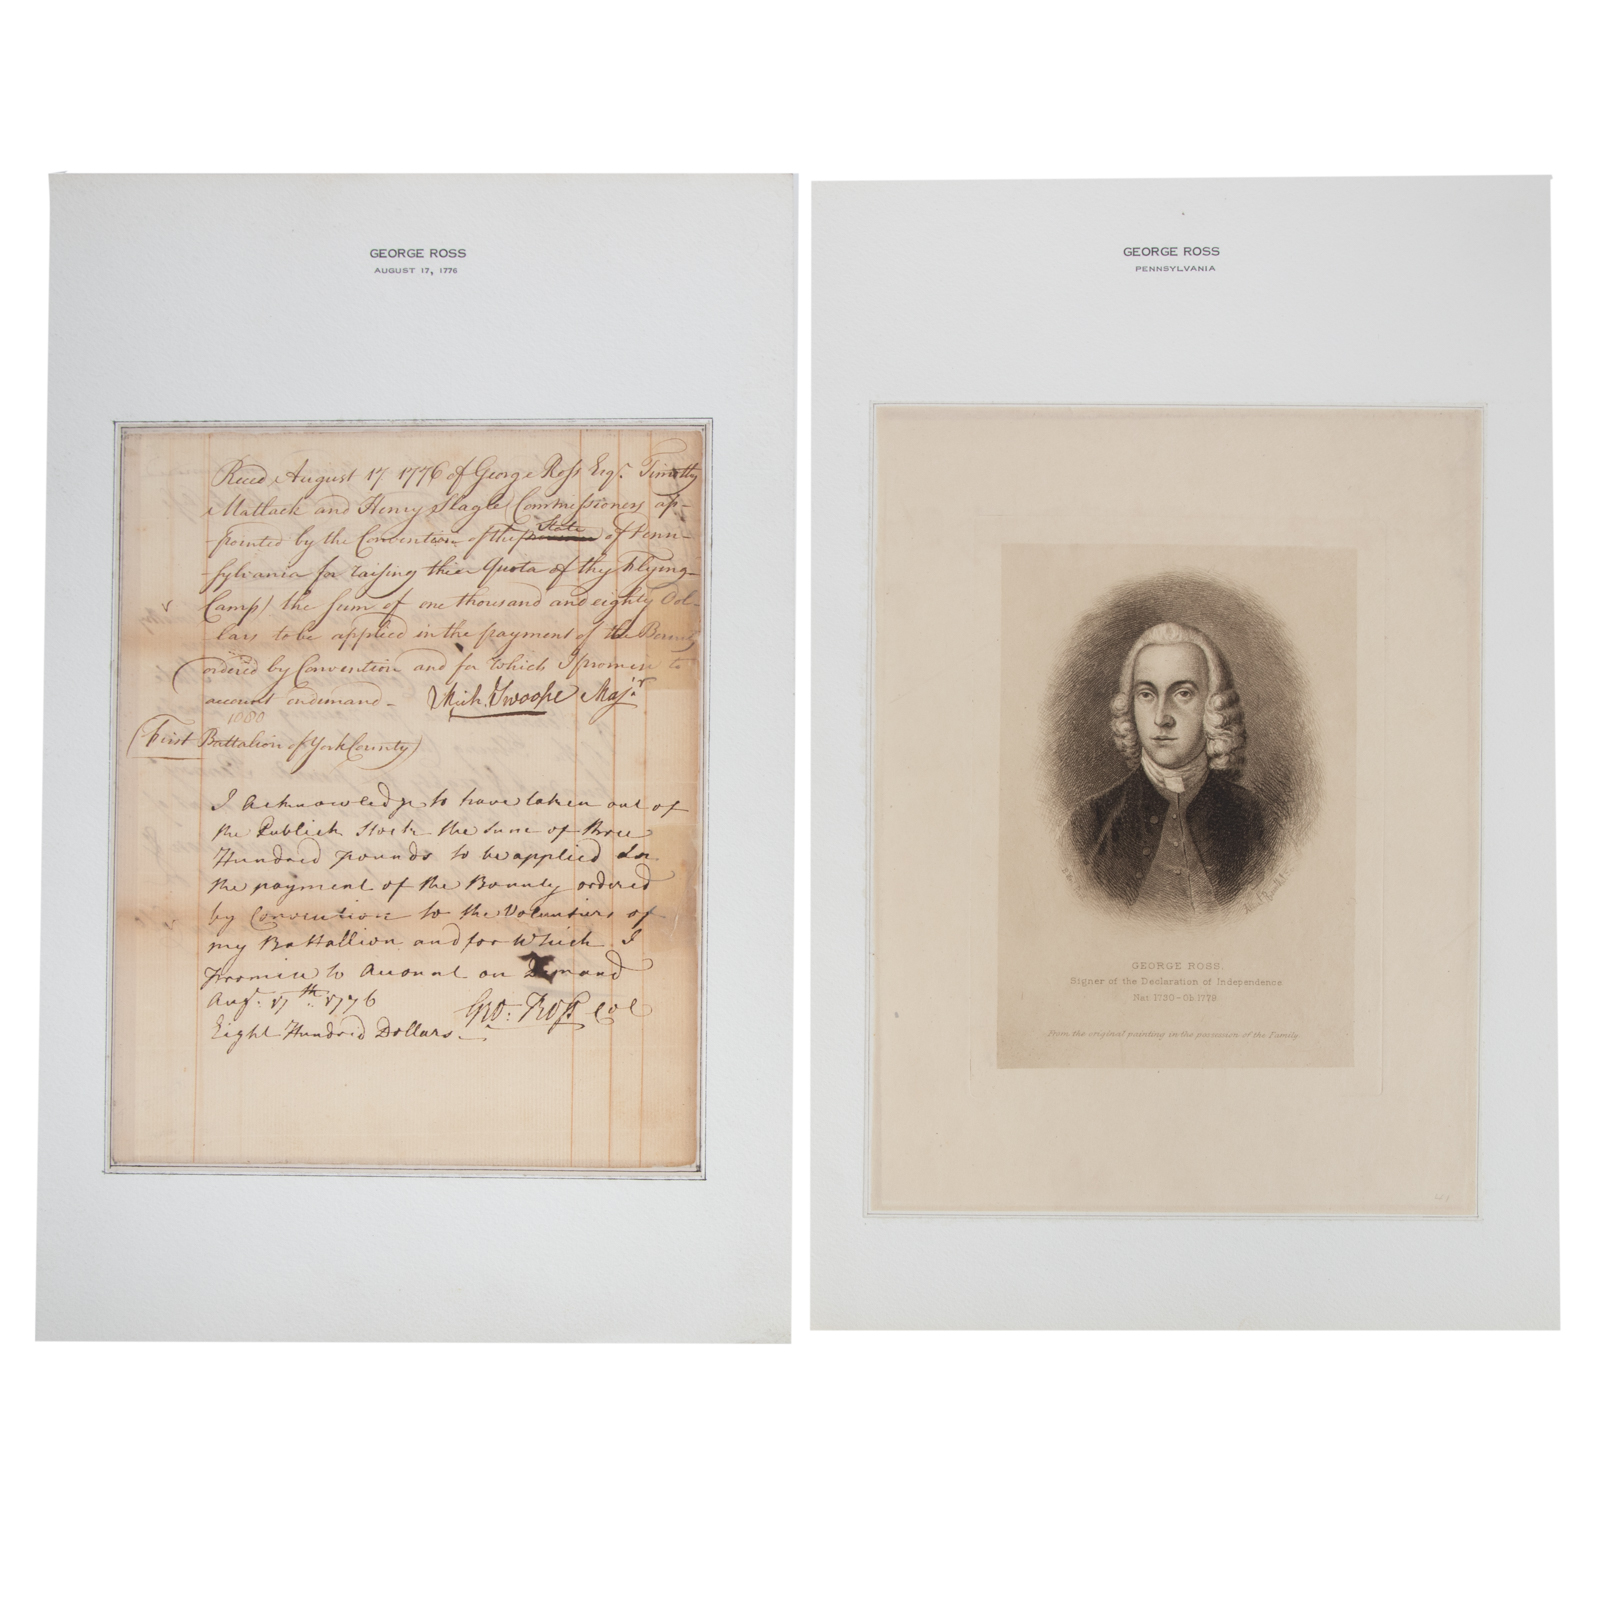 GEORGE ROSS
AUGUST 17, 1776
Recd August 17 1776 of George Ross Esqr. Timothy
Matlack and Henry Slagle (Commissioners ap-
pointed by the Convention of the State of Penn-
sylvania for raising their Quota of the Flying
Camp) the Sum of one thousand and eighty Dol-
lars to be applied in the payment of the Bounty
ordered by Convention and for which I promise to
account on demand - Mich. Swoope Majr
1080
(First Battalion of York County)
I Acknowledge to have taken out of
the Publick Stock the Sum of three
Hundred pounds to be applied In
the payment of the Bounty ordered
by Convention to the Voluntiers of
my Battallion and for Which I
promise to Account on Demand
Augt. 17th 1776 Geo: Ross Col
Eight Hundred Dollars
GEORGE ROSS
PENNSYLVANIA
GEORGE ROSS.
Signer of the Declaration of Independence
Nat 1730 - Ob 1779
From the original painting in the possession of the Family